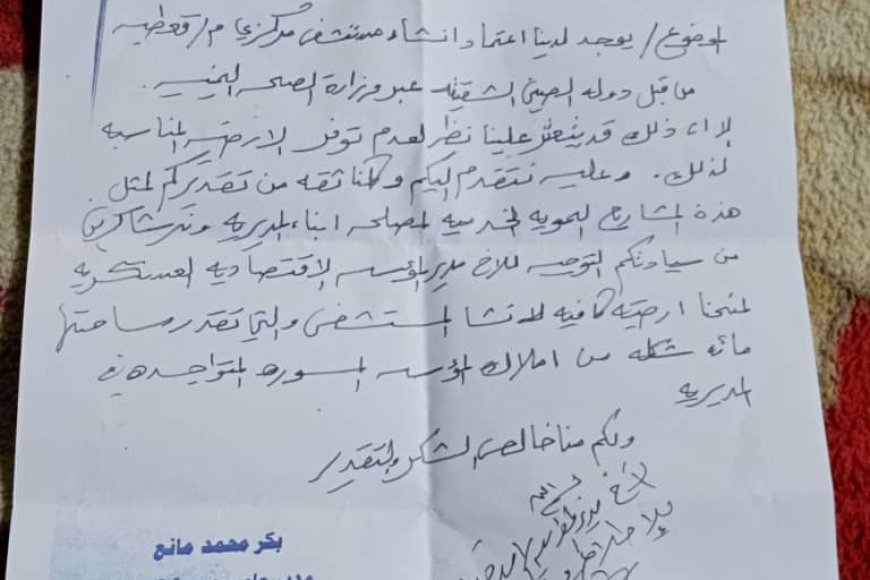 الموضوع/ يوجد لدينا اعتماد انشاء مستشفى مركزي م/ قعطبه
من قبل دوله الصين الشقيقه عبر وزارة الصحه اليمنيه.
إلا ان ذلك قد يتعثر علينا نظر لعدم توفر الارضيه المناسبه
لذلك. وعليه نتقدم اليكم وكلنا ثقه من تقديركم لمثل
هذة المشاريع التنمويه الخدميه لمصلحه ابناء المديريه
من سيادتكم التوجيه للاخ مدير المؤسسه الاقتصاديه العسكريه
لمنحنا ارضيه كافيه لانشا المستشفى والتي تقدر مساحتها
مائه شكله من املاك المؤسسه المسوره المتواجده في
المديريه
ولكم منا خالص الشكر والتقدير
بكر محمد مانع